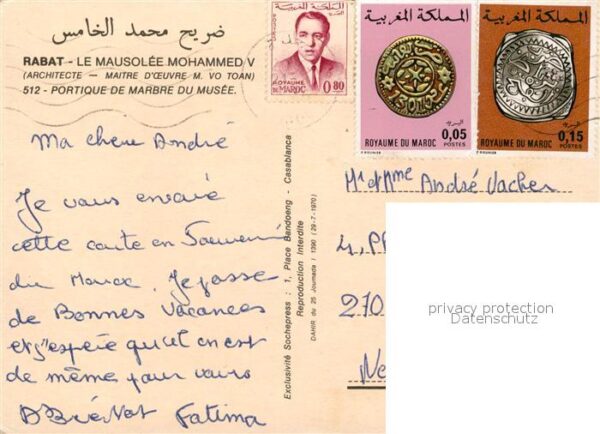 ضريح محمد الخامس
RABAT - LE MAUSOLÉE MOHAMMED V
(ARCHITECTE — MAITRE D'ŒUVRE M. VO TOAN)
512 - PORTIQUE DE MARBRE DU MUSÉE.
Ma chere André
Je vous envoie
cette carte en Souvenir
du Maroc. Je passe
de Bonnes Vacances
et j'espère qu'il en est
de même pour vous
Fatima
Exclusivité Sochepress : 1, Place Bandoeng - Casablanca
Reproduction Interdite
DAHIR du 25 Joumada I 1390 (29-7-1970)
المملكة المغربية
ROYAUME
DU MAROC
0,80
المملكة المغربية
0,05
ROYAUME DU MAROC
POSTES
المملكة المغربية
0,15
ROYAUME DU MAROC
POSTES
Mr et Mme André Vacher
4,
210
privacy protection
Datenschutz